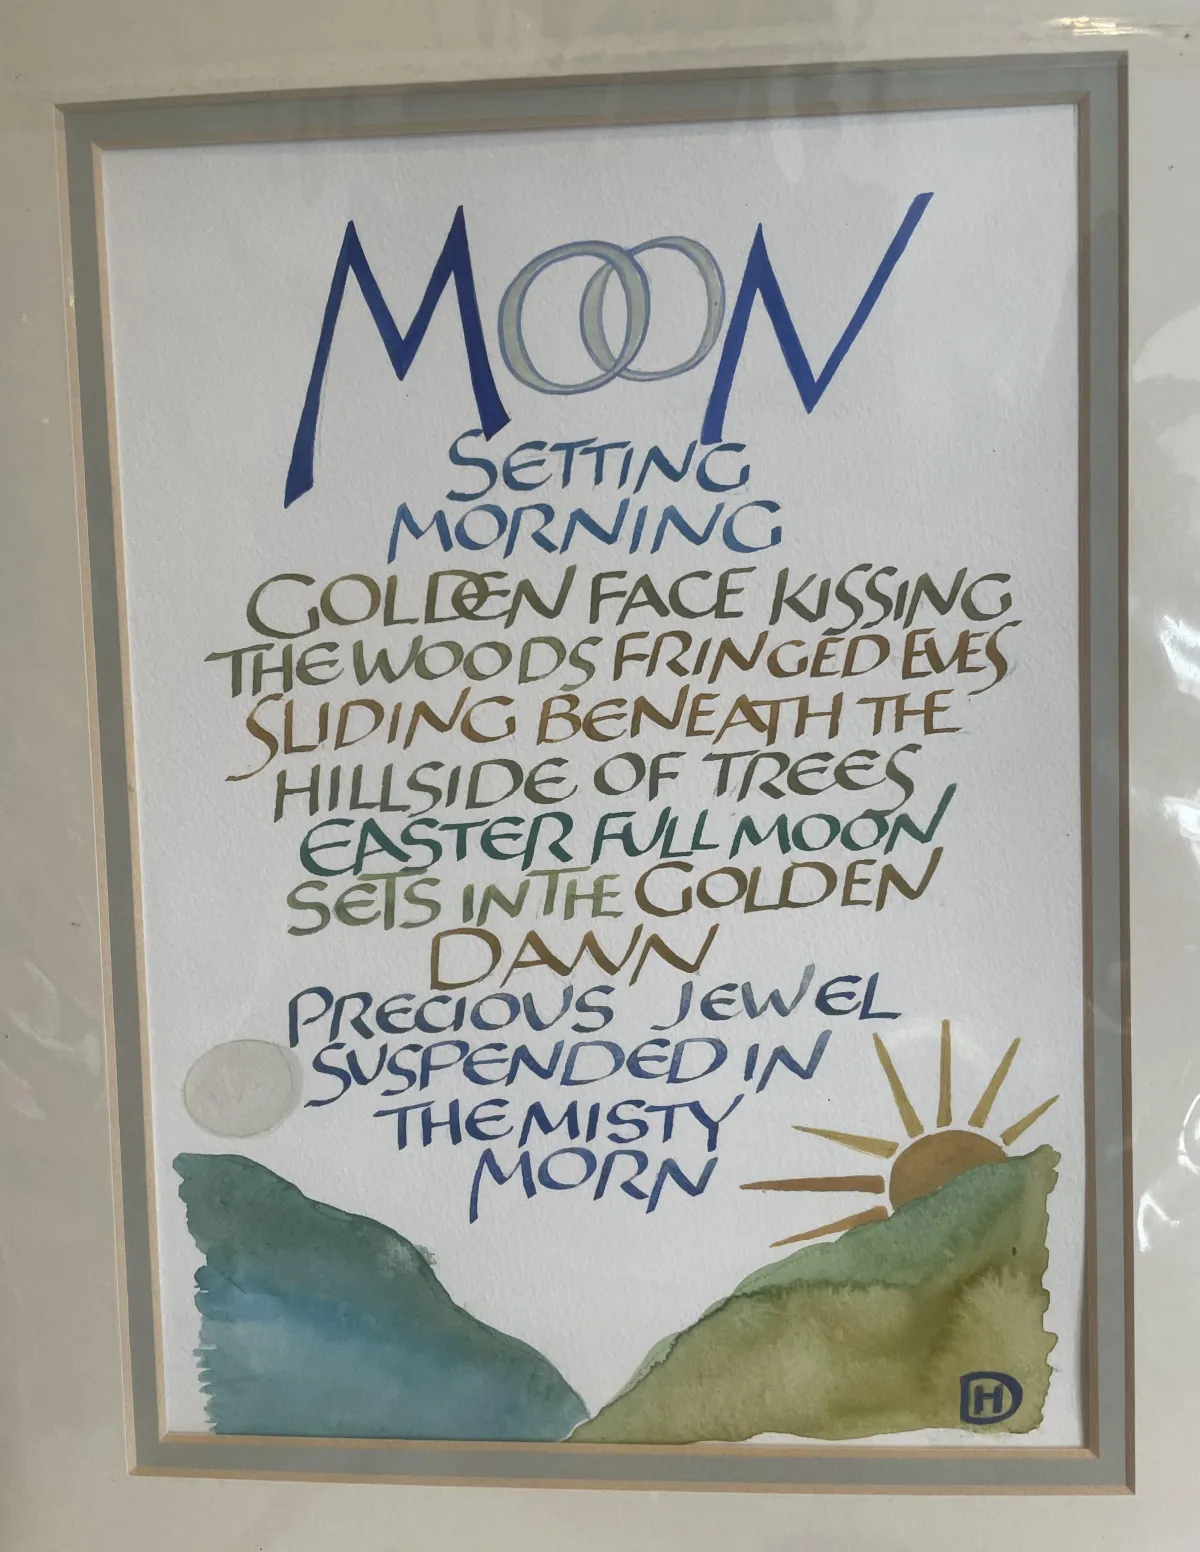 MOON
SETTING
MORNING
GOLDEN FACE KISSING
THE WOODS FRINGED EVES
SLIDING BENEATH THE
HILLSIDE OF TREES
EASTER FULL MOON
SETS IN THE GOLDEN
DAWN
PRECIOUS JEWEL
SUSPENDED IN
THE MISTY
MORN
DH